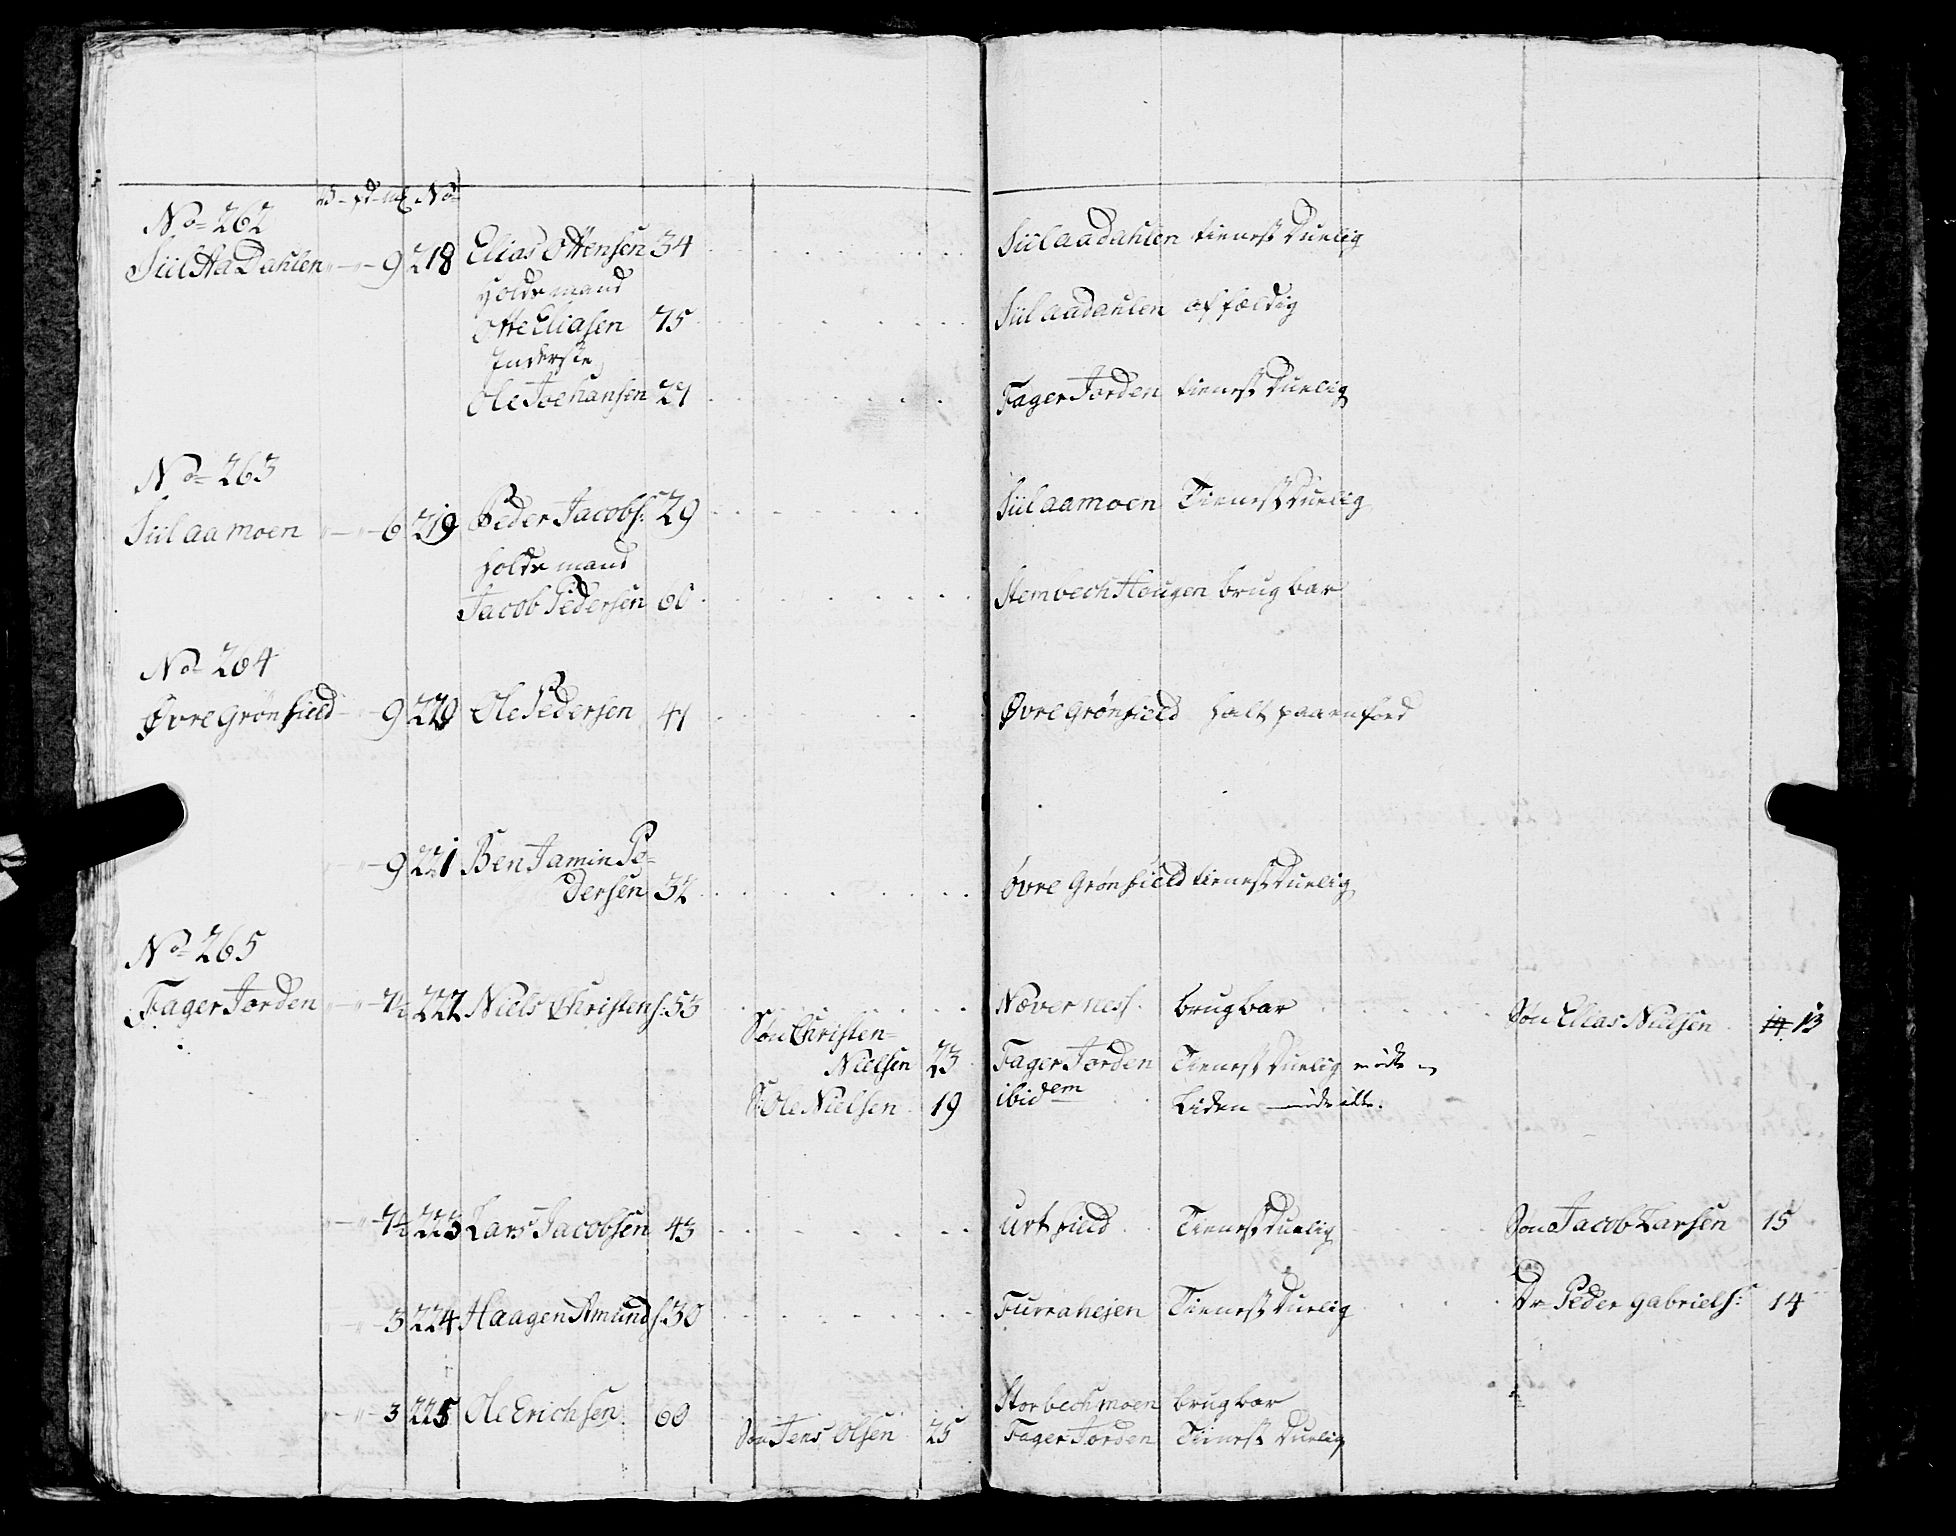 No 262
SiilAaDahlen 9 218 Elias Ottensen 34 Siilaadahlen tienest Duelig
Holde mand
Otte Eliasen 75 Siilaadahlen affældig
Inderste
Ole Joehansen 27 FagerJorden tienest Duelig
No 263
Siilaamoen 6 219 Peder Jacobs: 29 Siilaamoen Tienest Duelig
Holde mand
Jacob Pedersen 60 StembechHougen brugbar
No 264
Øvre Grønfield 9 220 Ole Pedersen 41 Øvre Grønfield halt paa en foed
9 221 BenJamin Pe-
dersen 32 øvre Grønfield tienest Duelig
No 265
FagerJorden 7½ 222 Niels Christens: 53 Næverness brugbar Søn Elias Nielsen 14 13
Søn Christen-
Nielsen 23 FagerJorden Tienest Duelig mødte
S: Ole Nielsen 19 ibidem Liden
7½ 223 Lars Jacobsen 43 urtfield Tienest Duelig Søn Jacob Larsen 15
3 224 Haagen Amunds: 30 Furrahejen Tienest Duelig Dr Peder gabriels: 14
3 225 Ole Erichsen 60 Storbechmoen brugbar
Søn Jens Olsen 25 FagerJorden Tienest Duelig